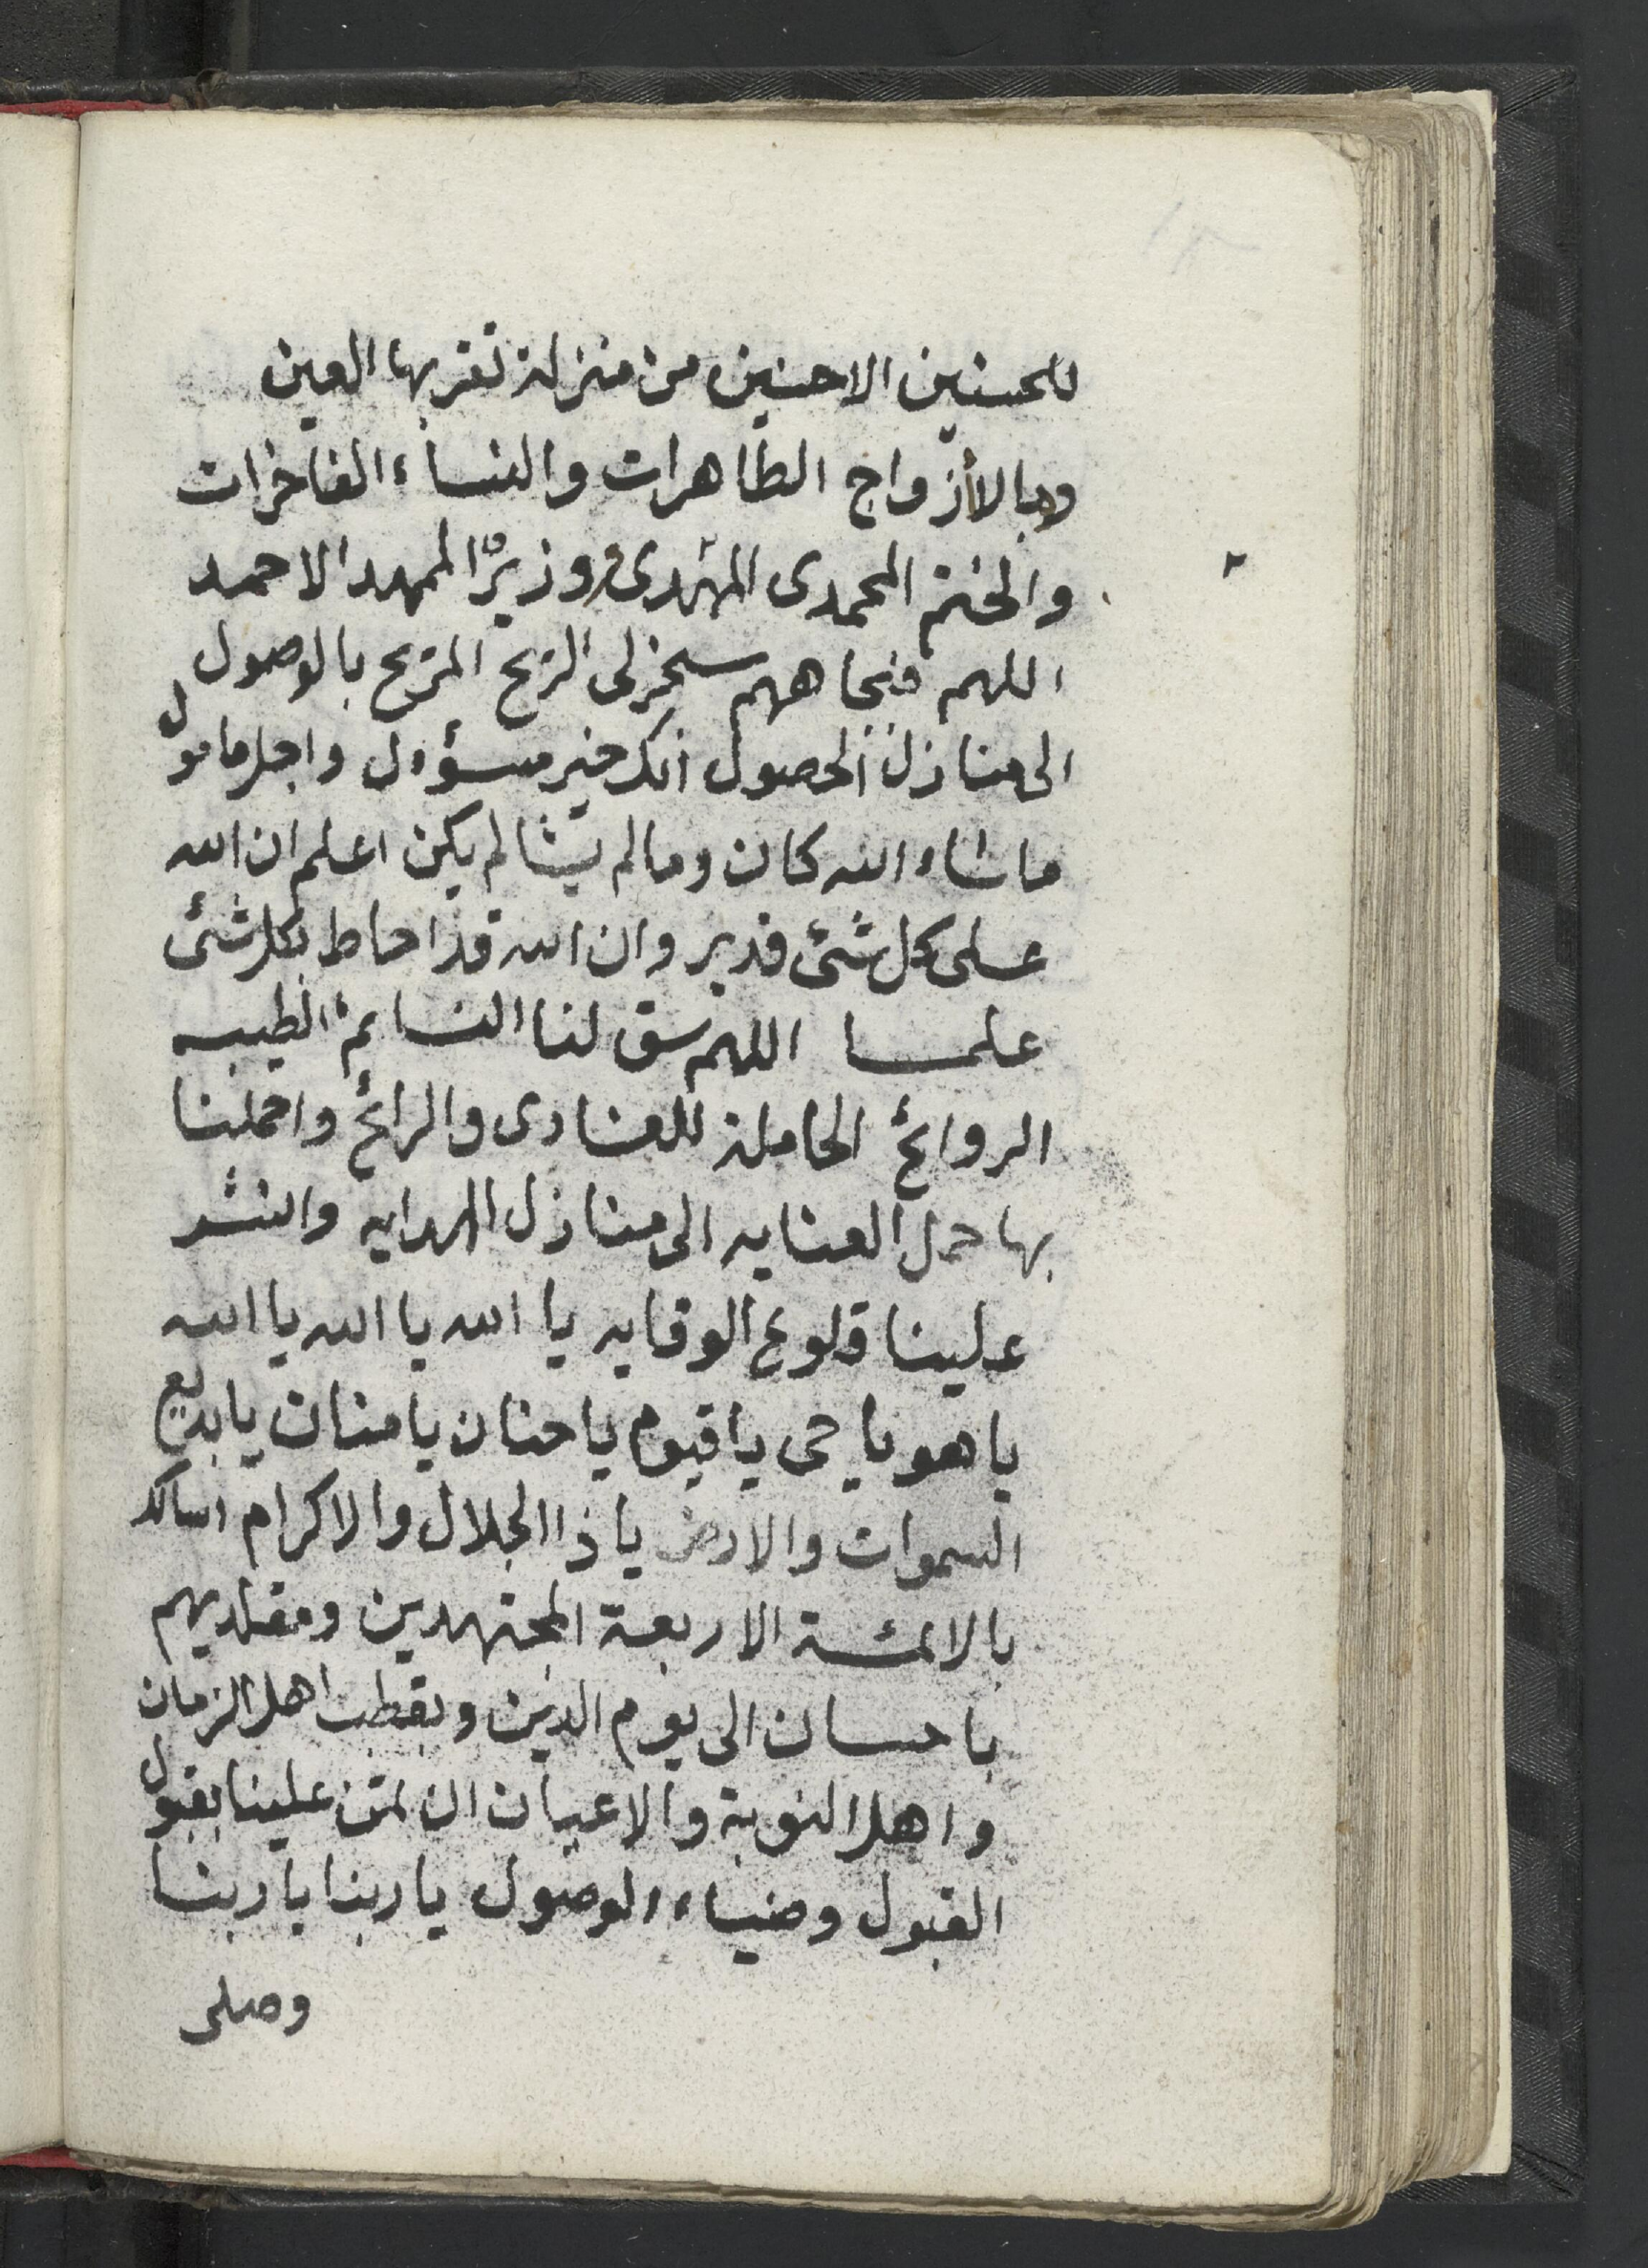 للحسنين الاحسنين من منزلة تقر بها العين
وبالأزواج الطاهرات والنساء الفاخرات
والختم المحمدى المهدى ووزير الممهد الاحمد
اللهم فبجاههم سخر لى الريح المريح بالوصول
الى منازل الحصول انك خير مسؤول واجل مامول
ماشاء الله كان ومالم يشا لم يكن اعلم ان الله
على كل شئ قدير وان الله قد احاط بكل شئ
علما اللهم سق لنا النسائم الطيبه
الروائح الحاملة للغادى والرائح واحملنا
بها حمل العنايه الى منازل الهدايه وانشر
علينا قلوع الوقايه يا الله يا الله يا الله
يا هو يا حى يا قيوم يا حنان يا منان يا بديع
السموات والارض يا ذا الجلال والاكرام اسالك
بالائمة الاربعة المجتهدين ومقلديهم
باحسان الى يوم الدين وبقطب اهل الزمان
واهل النوبة والاعيان ان تمن علينا بقبول
القبول وضياء الوصول يا ربنا يا ربنا
وصلى